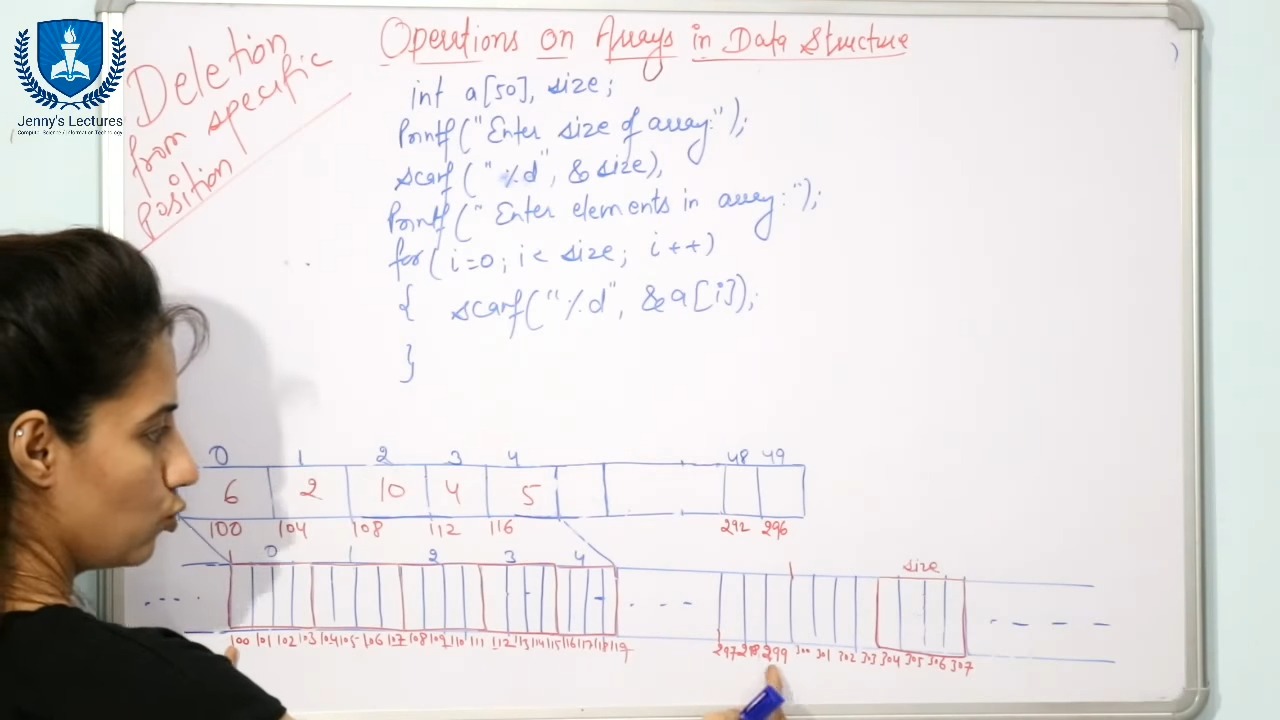 Jenny's Lectures
Computer Science / Information Technology
Deletion
from specific
position
Operations on Arrays in Data Structure
int a[50], size;
Printf("Enter size of array:");
scanf("%d", &size);
Printf("Enter elements in array:");
for(i=0; i< size; i++)
{ scanf("%d", &a[i]);
}
0 1 2 3 4 48 49
6 2 10 4 5
100 104 108 112 116 292 296
0 1 2 3 4 size
100 101 102 103 104 105 106 107 108 109 110 111 112 113 114 115 116 117 118 119 297 298 299 300 301 302 303 304 305 306 307